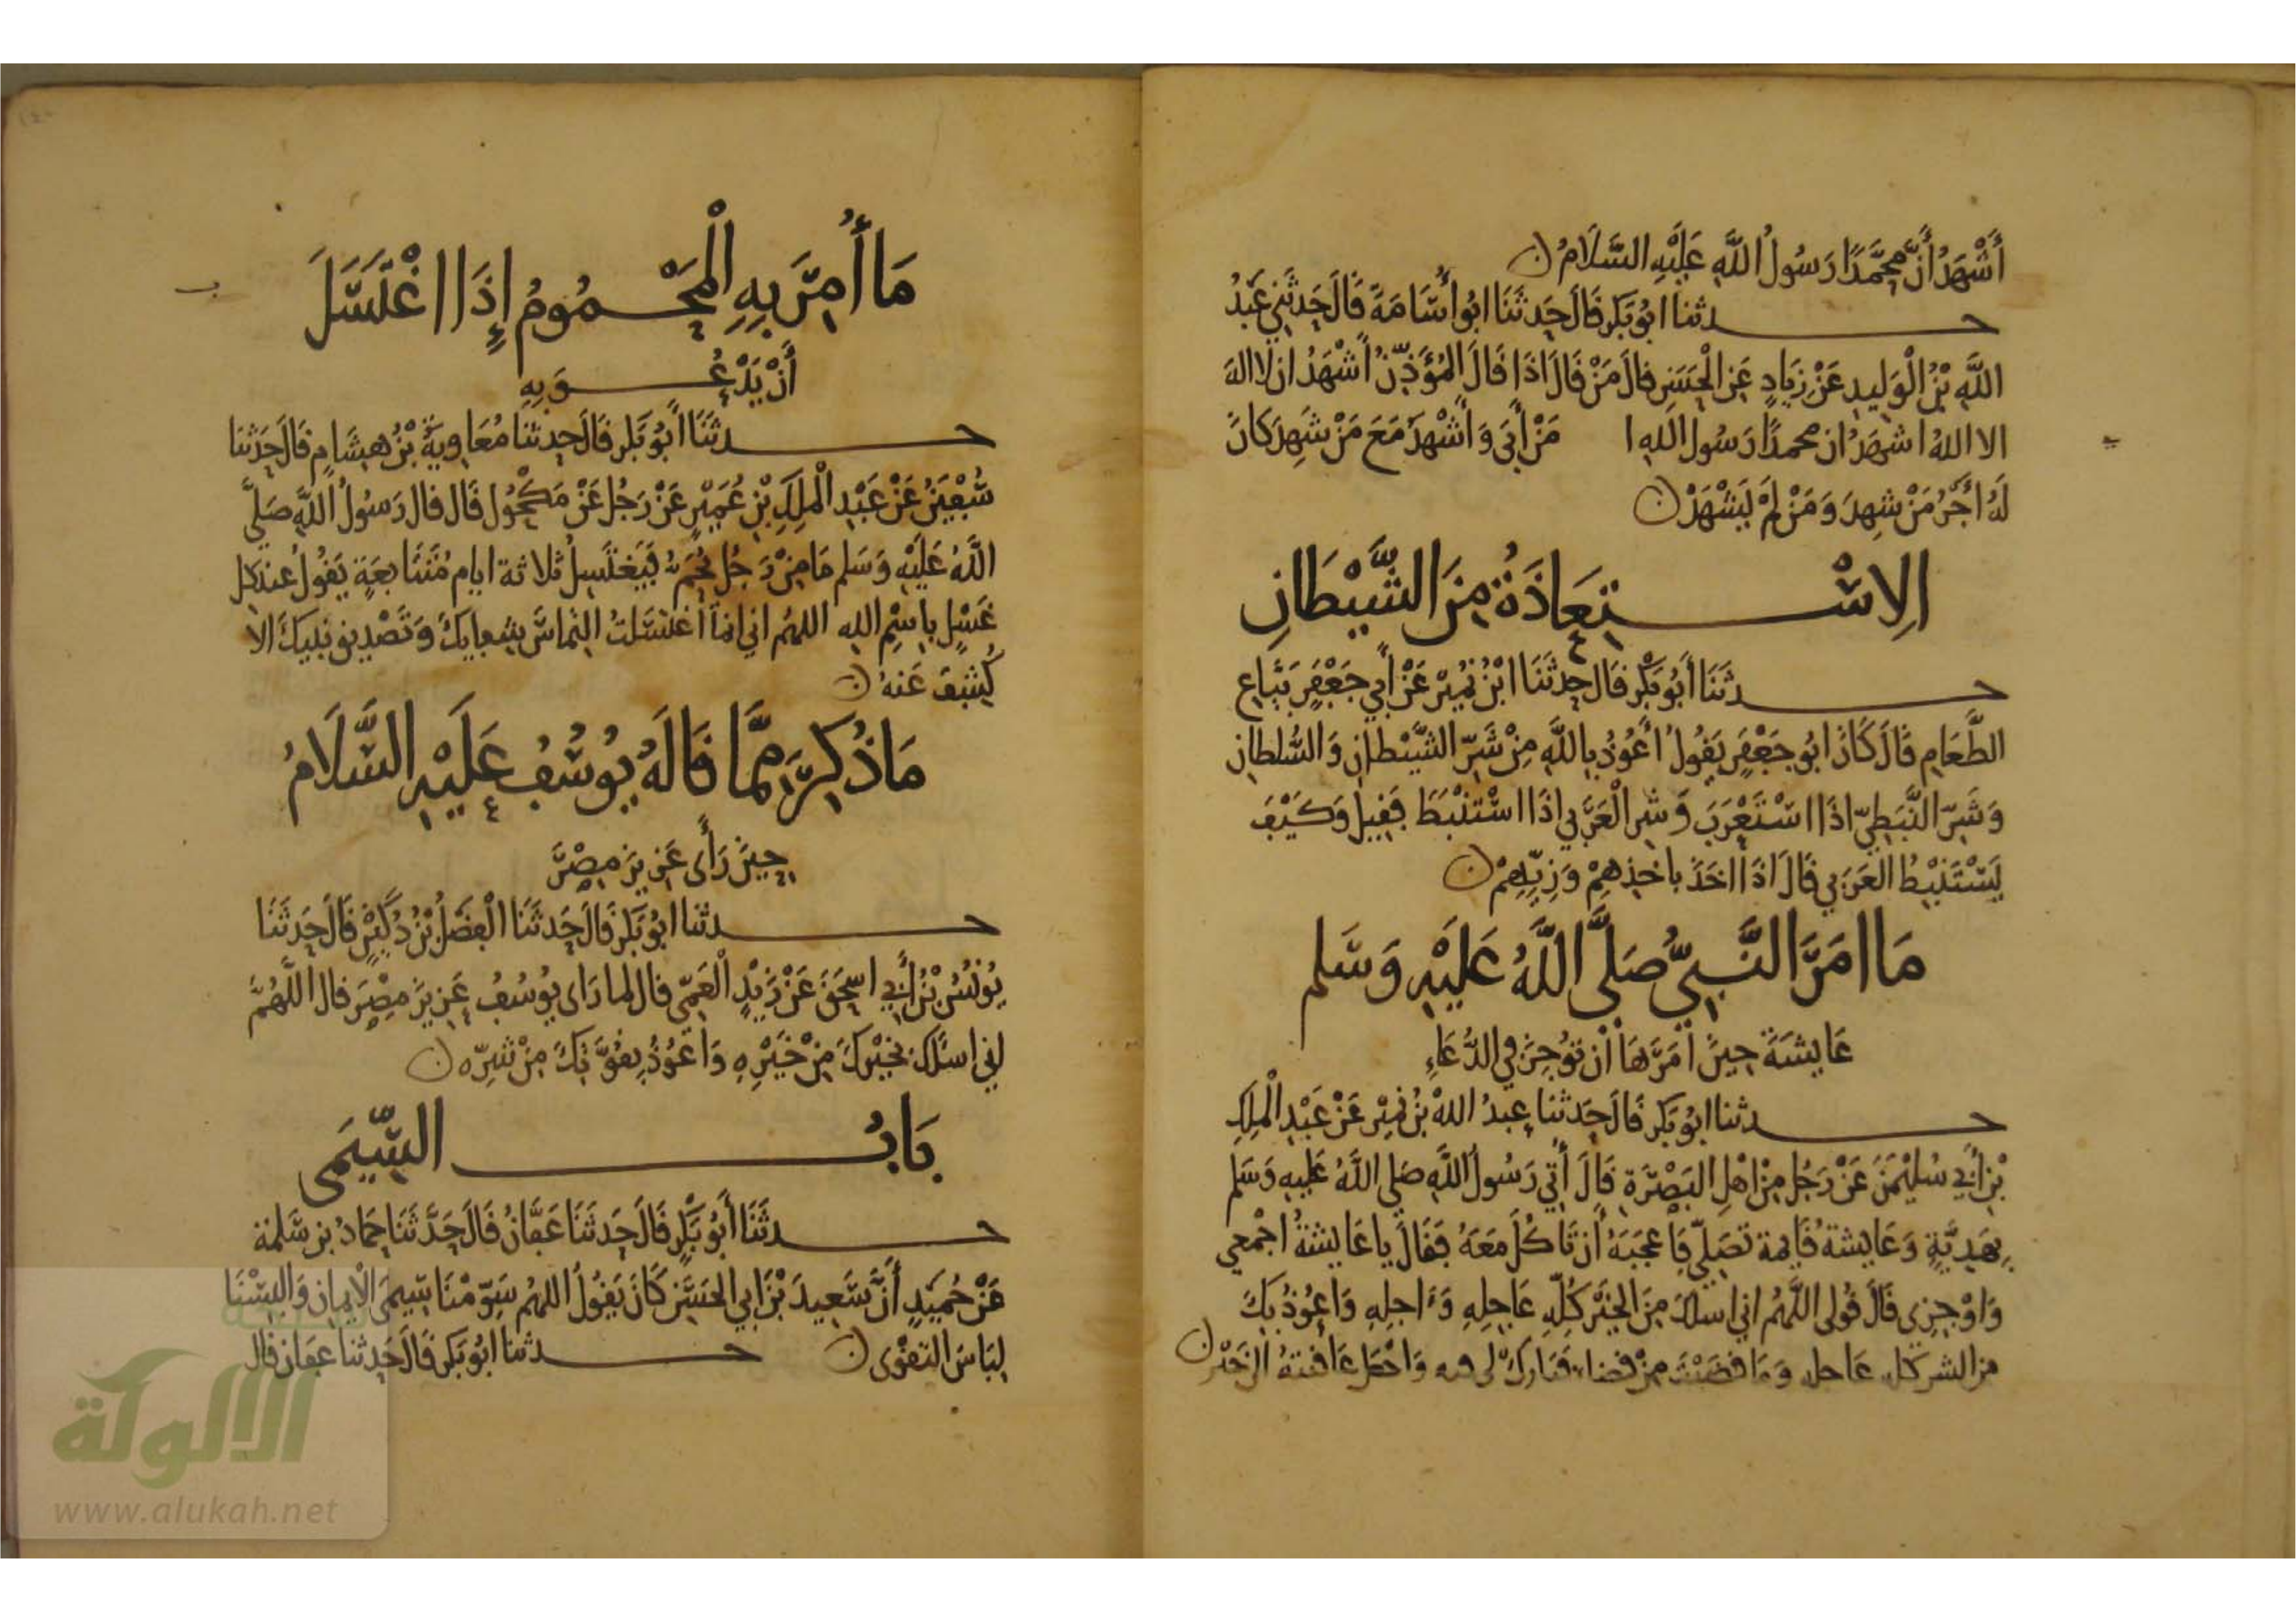 أَشْهَدُ أَنَّ مُحَمَّدًا رَسُولُ اللَّهِ عَلَيْهِ السَّلَامُ ن
حدثنا ابُو بَكر قَالَ حَدثَنَا ابُو أُسَامَةَ قَالَ حَدثَنِي عَبْدُ
اللَّهِ بْنُ الْوَلِيدِ عَنْ زِيَادٍ عَنِ الْحَسَنِ قالَ مَنْ قَالَ اذَا قَالَ الْمُؤَذِّنُ أَشْهَدُ ان لا اله
الا اللهُ اشهَدُ ان محمدًا رَسُول الله ا مَنْ أَبَى وَأَشْهَدُ مَعَ مَنْ شَهِدَ كانَ
لَهُ أَجْرُ مَنْ شهِدَ وَمَنْ لَمْ يَشْهَدْ ن
الِاسْتِعَاذَةُ مِنَ الشَّيْطَانِ
حدثَنَا أَبُو بَكْرٍ قَال حدثَنَا ابْنُ نُمَيْرٍ عَنْ أَبِي جَعْفَرٍ بَيَّاعِ
الطَّعَامِ قَالَ كَانَ ابُو جَعْفَرٍ يَقُولُ أَعُوذُ بِاللَّهِ مِنْ شَرِّ الشَّيْطانِ وَالسُّلطانِ
وَشَرِّ النَّبَطِيِّ اذَا اسْتَعْرَبَ وَشرِ الْعَرَبي اذَا اسْتَنْبَطَ فَقِيلَ وَكَيْفَ
يَسْتَنْبِطُ العَرَبي قَالَ اذَا اخَذَ باخذِهِمْ وَزِيِّهِمْ ن
مَا امَرَ النَّبِيُّ صَلَّى اللَّهُ عَلَيْهِ وَسَلم
عَايشَةَ حِينَ أَمَرَهَا أَن تُوجزَ في الدُّعَاءِ
حدثنا ابُو بَكر قَالَ حَدثنا عبدُ اللهِ بْنُ نُمَيْر عَنْ عَبْدِ الْمَلِكِ
بْنِ أَبِي سُلَيْمَنَ عَنْ رَجُلٍ مِنْ اهْلِ البَصْرَةِ قَالَ أُتِيَ رَسُولُ اللَّهِ صَلى اللَّهُ عَليهِ وَسَلم
بِهَدِيَّةٍ وَعَايشة قَايمة تصَلِّي فَاعجَبَهُ أن تَاكُلَ مَعَهُ فَقَالَ يا عَايشةُ اجْمعي
وَاوْجِزي قَالَ قُولى اللَّهُمَّ اني اسلك مِنَ الخَيْرِ كُلِّهِ عَاجِلِهِ وَءَاجلِهِ وَاعُوذُ بِكَ
من الشر كله عَاجله وَمَا قضَيْتَ مِنْ قضاء فَبَارك لى فيه وَاجْعَل عَاقبتهُ الى خَيْر ن
مَا أُمِرَ بِهِ الْمَحْمُومُ إِذَا اغْتَسَلَ
أَنْ يَدْعُوَ بِهِ
حدثَنَا أَبُو بَكر قَالَ حدثنا مُعَاوِيةُ بْنُ هِشَامٍ قَالَ حَدثنَا
سُفْيَنُ عَنْ عَبْدِ الْمَلِكِ بْنِ عُمَيْرٍ عَنْ رَجُلٍ عَنْ مَكْحُولٍ قَال قال رَسُولُ اللَّهِ صَلَّى
اللَّهُ عَلَيْهِ وَسَلم مَا مِنْ رَجُلٍ يُحَمُّ فَيَغتَسِلُ ثلاثة ايام مُتَتَابعَةٍ يَقُولُ عِندَ كل
غَسْلٍ بِاسْمِ اللهِ اللهُمَّ اني انمَا اغتسَلتُ التمَاسَ شِفَايكَ وَتَصْدِيقِ نبيكَ الا
كُشِفَ عَنهُ ن
مَا ذُكِرَ مِمَّا قَالَهُ يُوسُفُ عَلَيْهِ السَّلَامُ
حِينَ رَأَى عَزِيزَ مِصْرَ
حدثنا ابُو بَكر قَالَ حَدثَنَا الْفَضْلُ بْنُ دُكَيْنٍ قَالَ حَدثَنَا
يُونُسُ بْنُ أَبِي اسحَقَ عَنْ زَيْدٍ الْعَمِّي قال لما رَاى يُوسُفُ عَزِيزَ مِصْرَ قال اللَّهُمَّ
اني اسلك بخَيْركَ مِنْ خَيْرِهِ وَاعُوذُ بعِزَّتِكَ مِنْ شَرِّه ن
بَابُ السِّيمَى
حدثَنَا أَبُو بَكْرٍ قَالَ حَدثَنَا عَفَّانُ قَالَ حَدَّثَنَا حمادُ بن سَلمة
عَنْ حُمَيْدٍ أَنَّ سَعِيدَ بْنَ ابي الحسَنِ كَانَ يَقُولُ اللهُمَّ سَوِّمْنَا سِيمَى الْايمانِ وَالبِسْنَا
لِبَاسَ التقوَى ن حدثنا ابُو بَكر قَالَ حَدثنَا عَفان قال
الألوكة
www.alukah.net